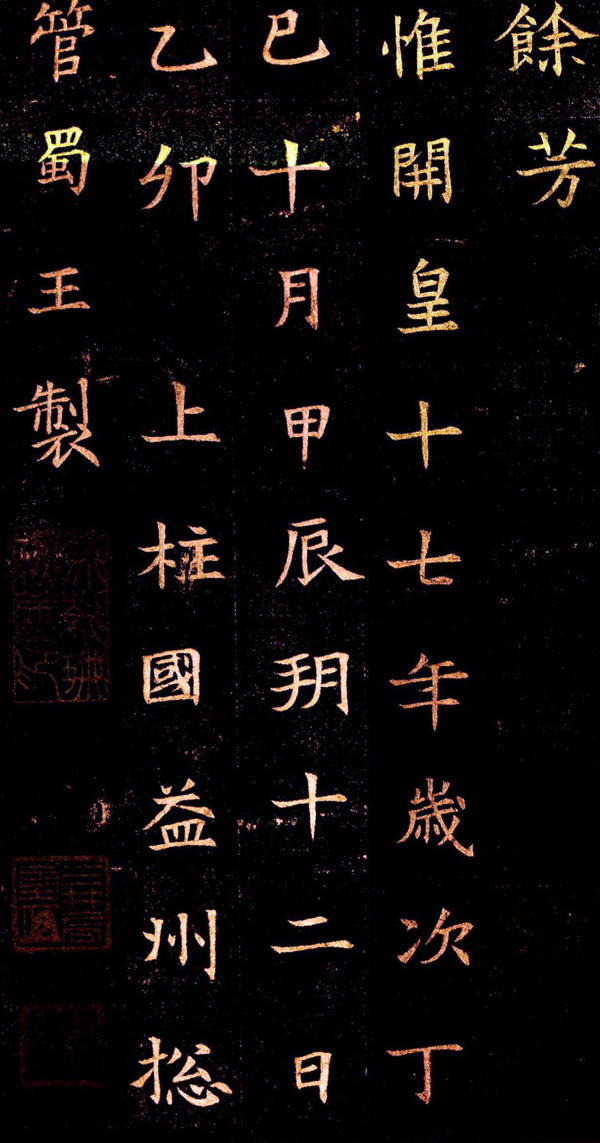 餘芳
惟開皇十七年歲次丁
巳十月甲辰朔十二日
乙卯上柱國益州捴
管蜀王製